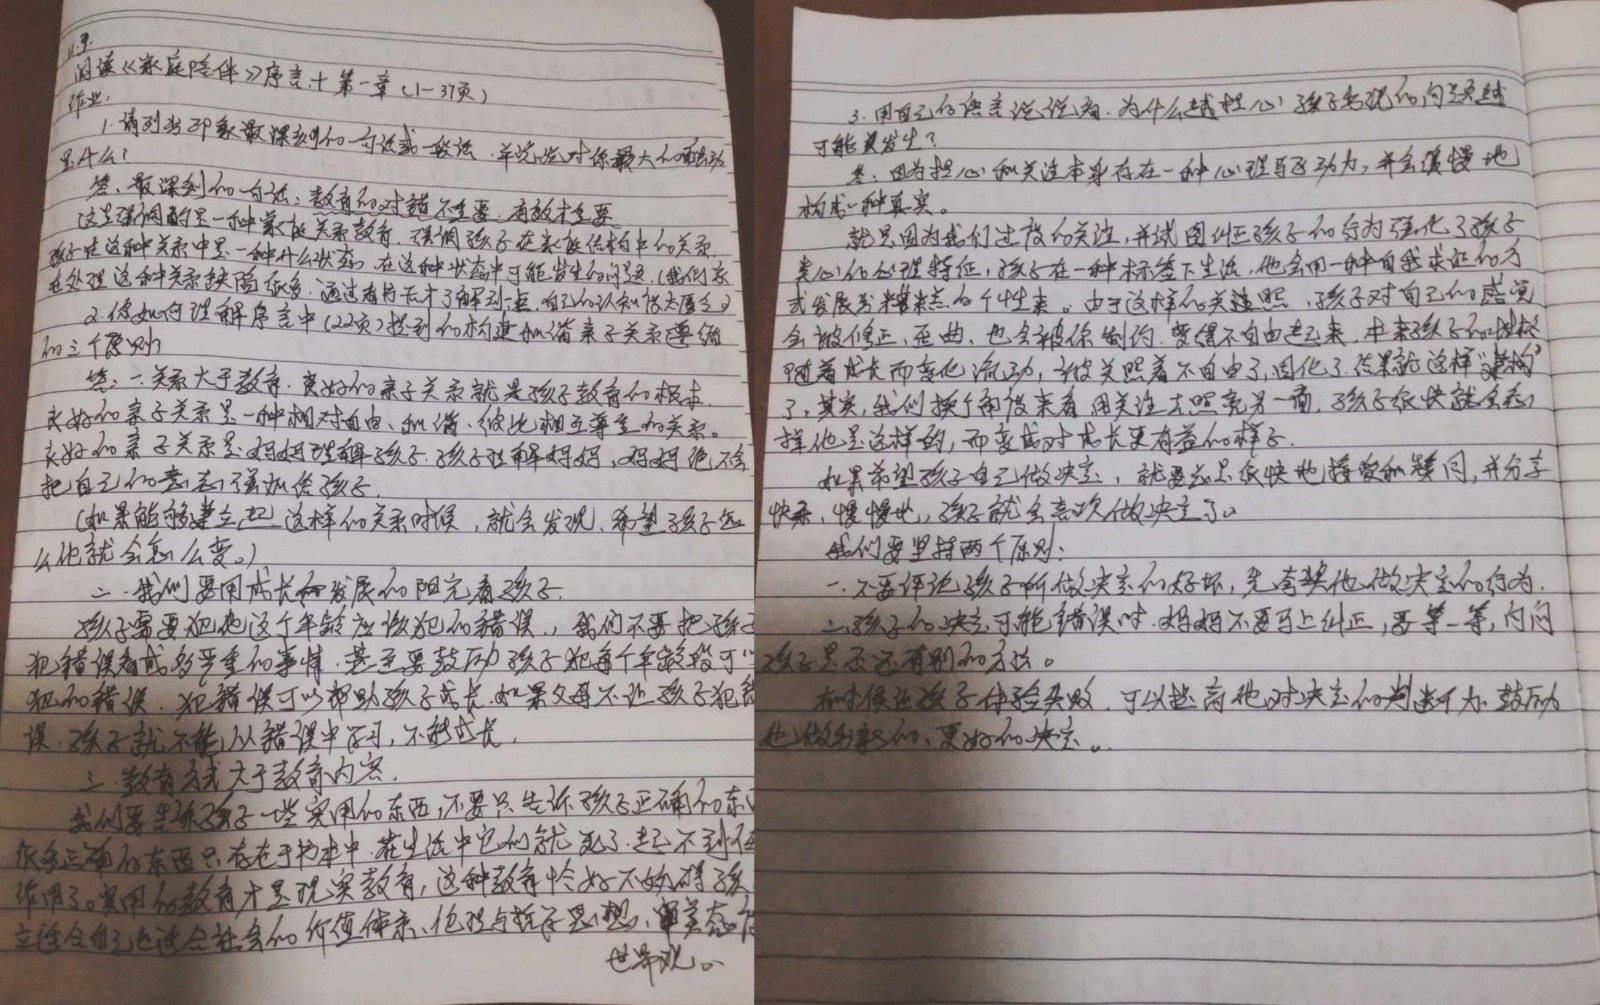 11.9.
阅读《家庭陪伴》序言+第一章(1-37页)
作业:
1.请列出印象最深刻的一句话或一段话.并说说对你最大的触动
是什么?
答:最深刻的一句话:教育的对错不重要.有效才重要
这里强调的是一种家庭关系教育.强调孩子在家庭结构中的关系.
孩子在这种关系中是一种什么状态,在这种状态中可能发生的问题.(我们家
在处理这种关系缺陷很多.通过看书后才了解到一点,自己的认知极大匮乏。)
2.你如何理解序言中(22页)提到的构建和谐亲子关系遵循
的三个原则
答:一.关系大于教育.良好的亲子关系就是孩子教育的根本.
良好的亲子关系是一种相对自由、和谐、彼此相互尊重的关系。
良好的亲子关系是妈妈理解孩子.孩子理解妈妈,妈妈绝不会
把自己的意志强加给孩子.
(如果能够建立起这样的关系时候,就会发现、希望孩子怎
么他就会怎么变。)
二.我们要用成长和发展的眼光看孩子.
孩子需要犯他这个年龄应该犯的错误.,我们不要把孩子
犯错误看成多严重的事情.甚至要鼓励孩子犯每个年龄段可以
犯的错误.犯错误可以帮助孩子成长.如果父母不让孩子犯错
误.孩子就不能从错误中学习,不能成长.
三.教育方式大于教育内容.
我们要告诉孩子一些实用的东西,不要只告诉孩子正确的东西
很多正确的东西只存在于书本中.在生活中它们就死了.起不到任
作用了。实用的教育才是现实教育,这种教育恰好不妨碍孩
立适合自己也适合社会的价值体系、伦理与哲学思想、审美态度
世界观。
3.用自己的语言说说看.为什么越担心孩子出现的问题越
可能会发生?
答:因为担心和关注本身存在一种心理与驱动力,并会慢慢地
构成一种真实。
就是因为我们过度的关注,并试图纠正孩子的行为强化了孩子
类似的心理特征,孩子在一种标签下生活,他会用一种自我求证的方
式发展出糟糕的个性来。由于这样的关照,孩子对自己的感觉
会被修正、歪曲、也会被你制约.变得不自由起来,本来孩子的性格
随着成长而变化流动,被关照着不自由了,固化了.结果就这样“建构”
了,其实,我们换个角度来看用关注去照亮另一面.孩子很快就会忘
掉他是这样的,而变成对成长更有益的样子.
如果希望孩子自己做决定,就要总是很快地接受和赞同,并分享
快乐,慢慢地,孩子就会喜欢做决定了。
我们要坚持两个原则:
一.不要评论孩子所做决定的好坏,先夸奖他做决定的行为.
二.孩子的决定可能错误时.妈妈不要马上纠正,要等一等,问问
孩子是否还有别的方法。
有时候让孩子体验失败.可以提高他对决定的判断力.鼓励
他做出新的、更好的决定。